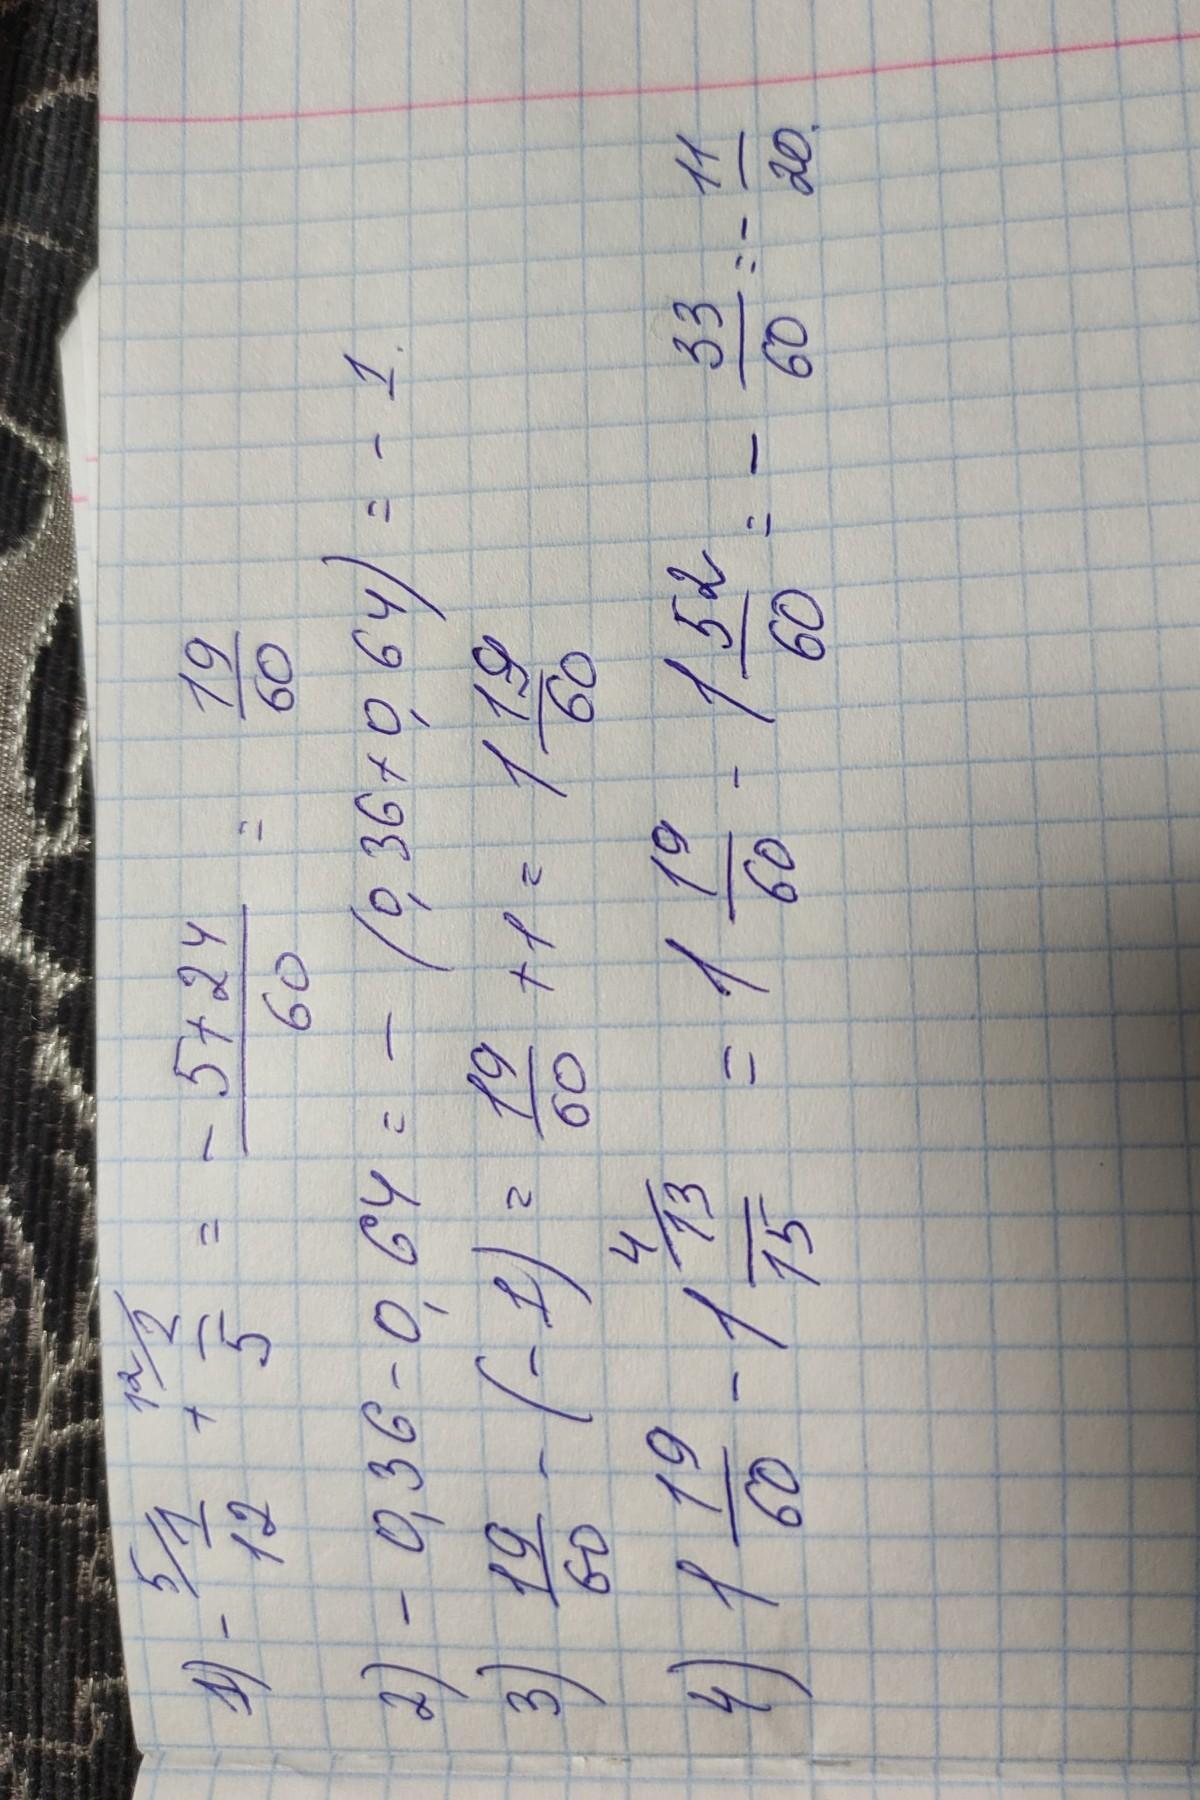 1) - 5/1/12 + 12/2/5 = -5+24/60 = 19/60
2) - 0,36 - 0,64 = - (0,36+0,64) = - 1.
3) 19/60 - (-1) = 19/60 +1 = 1 19/60
4) 1 19/60 - 1 4/13/15 = 1 19/60 - 1 52/60 = - 33/60 = - 11/20.